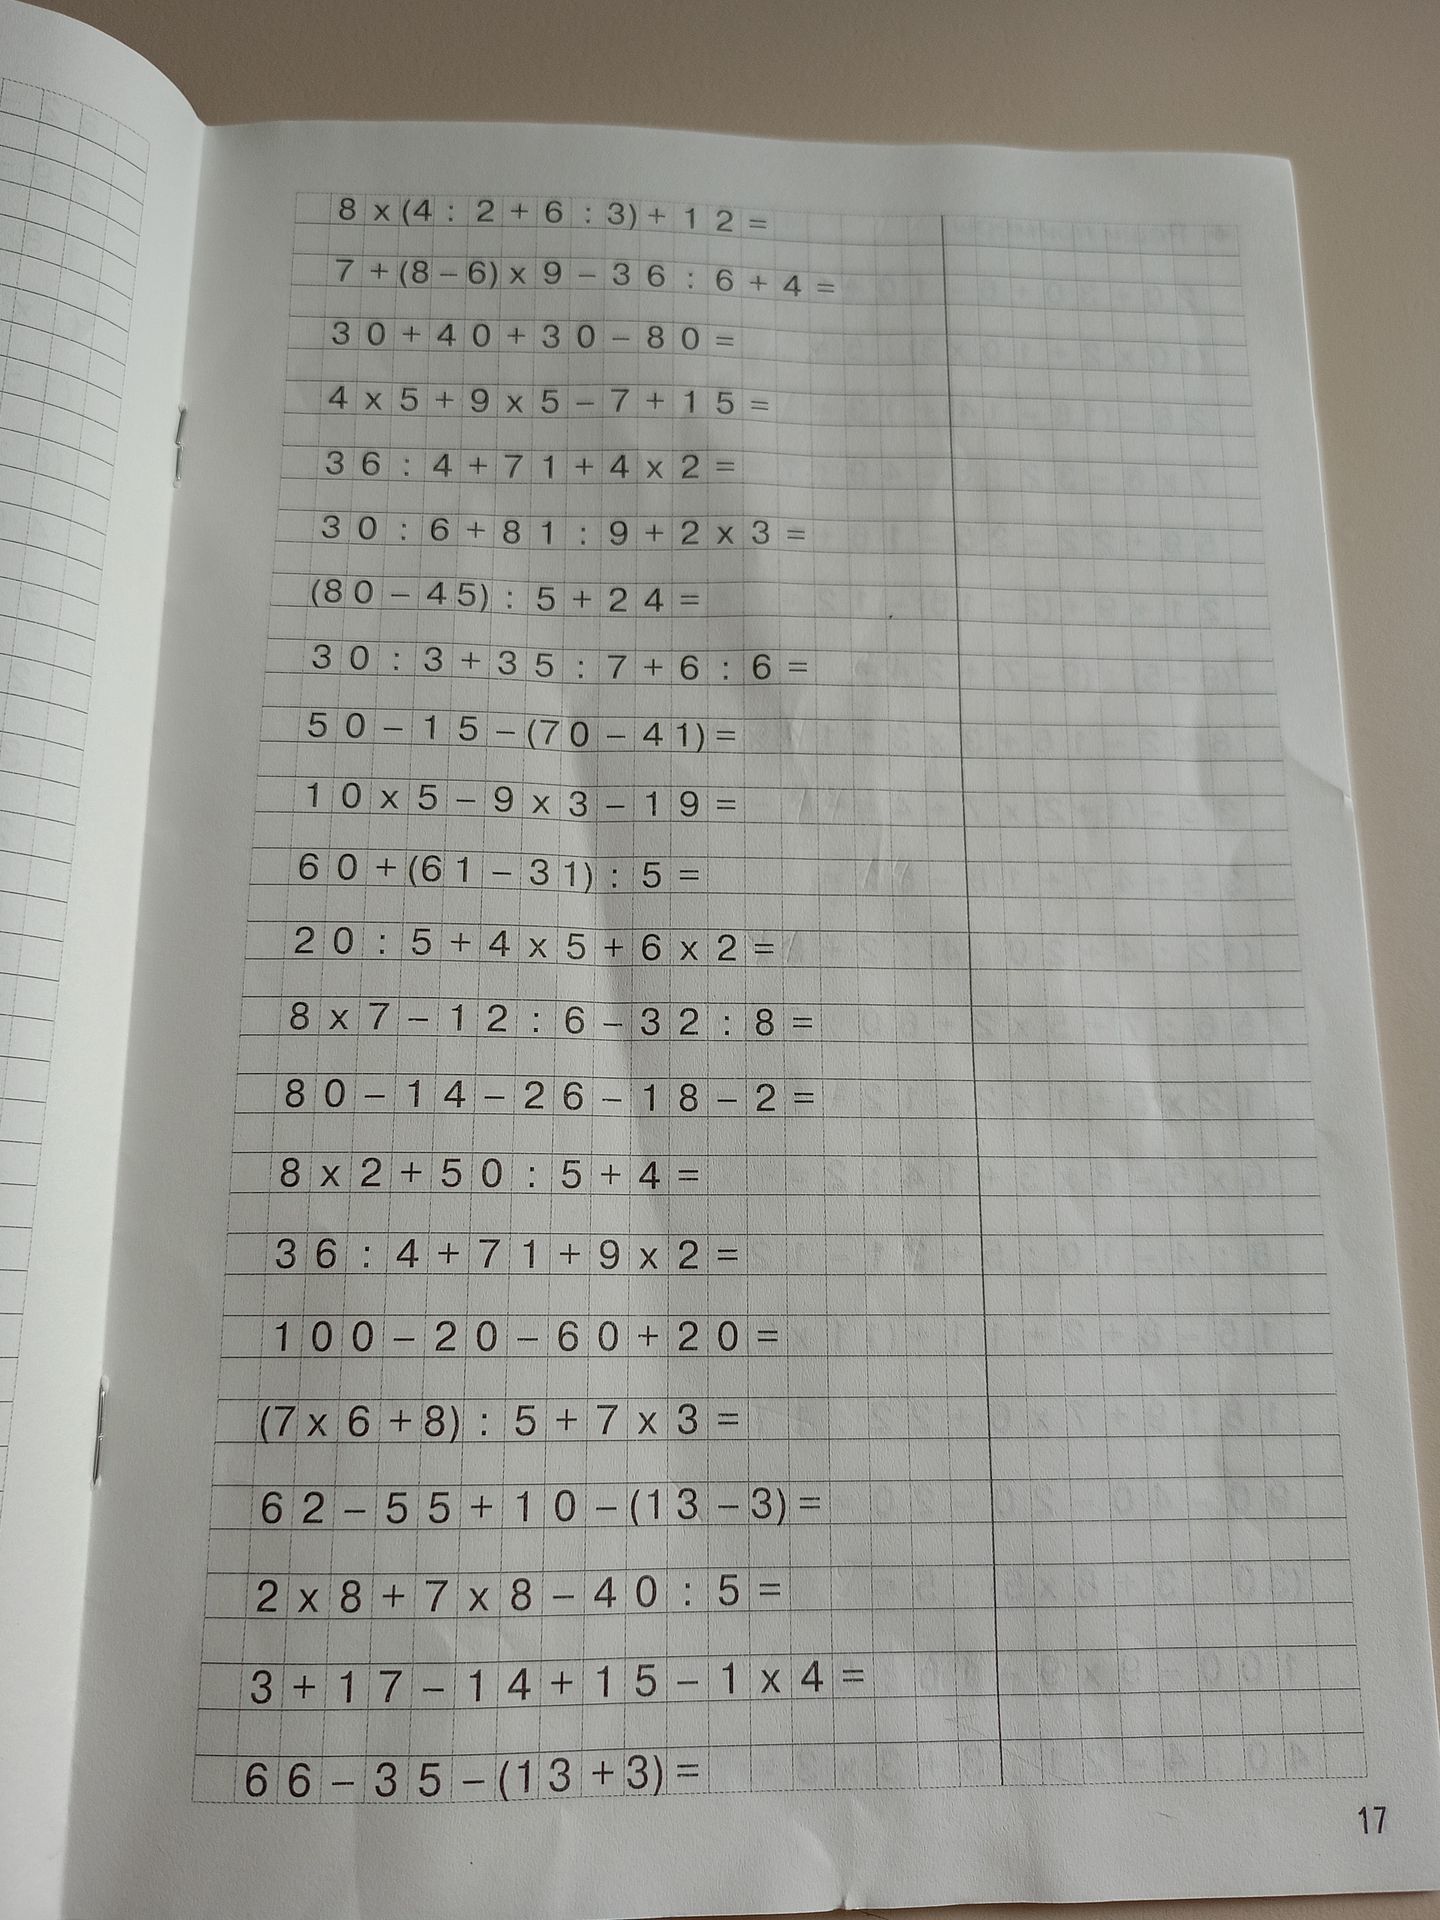 8x(4:2+6:3)+12=
7+(8-6)x9-36:6+4=
30+40+30-80=
4x5+9x5-7+15=
36:4+71+4x2=
30:6+81:9+2x3=
(80-45):5+24=
30:3+35:7+6:6=
50-15-(70-41)=
10x5-9x3-19=
60+(61-31):5=
20:5+4x5+6x2=
8x7-12:6-32:8=
80-14-26-18-2=
8x2+50:5+4=
36:4+71+9x2=
100-20-60+20=
(7x6+8):5+7x3=
62-55+10-(13-3)=
2x8+7x8-40:5=
3+17-14+15-1x4=
66-35-(13+3)=
17